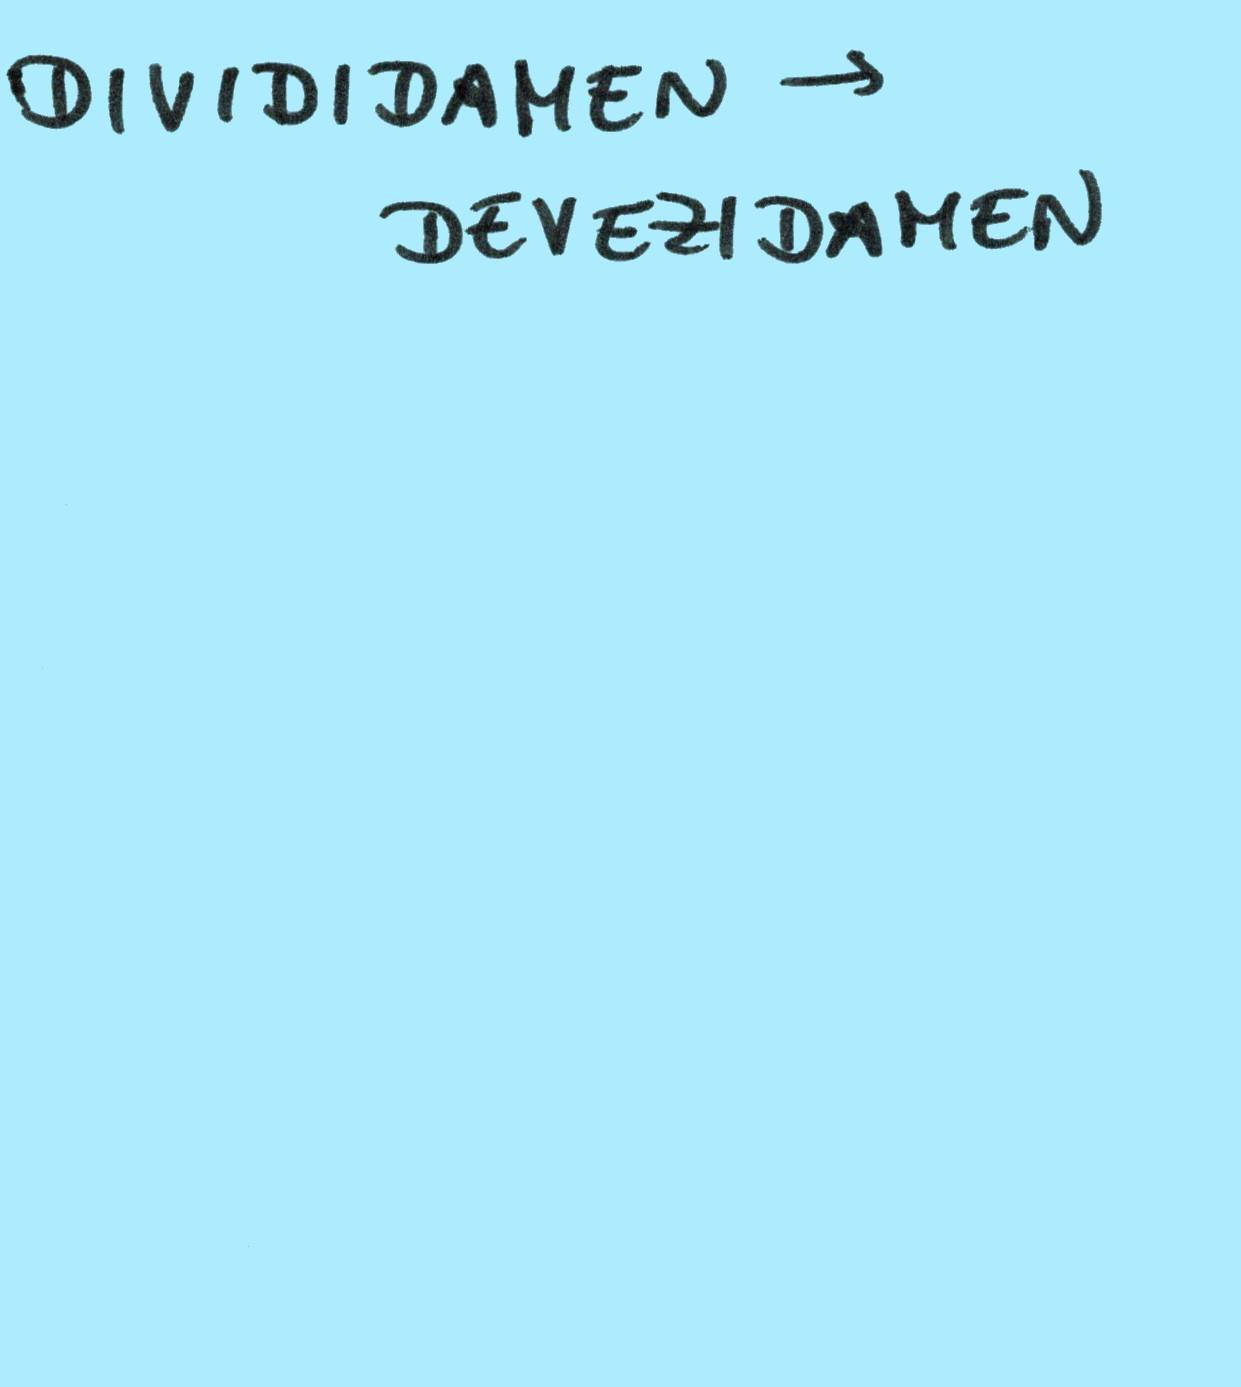 DIVIDIDAMEN →
DEVEZIDAMEN